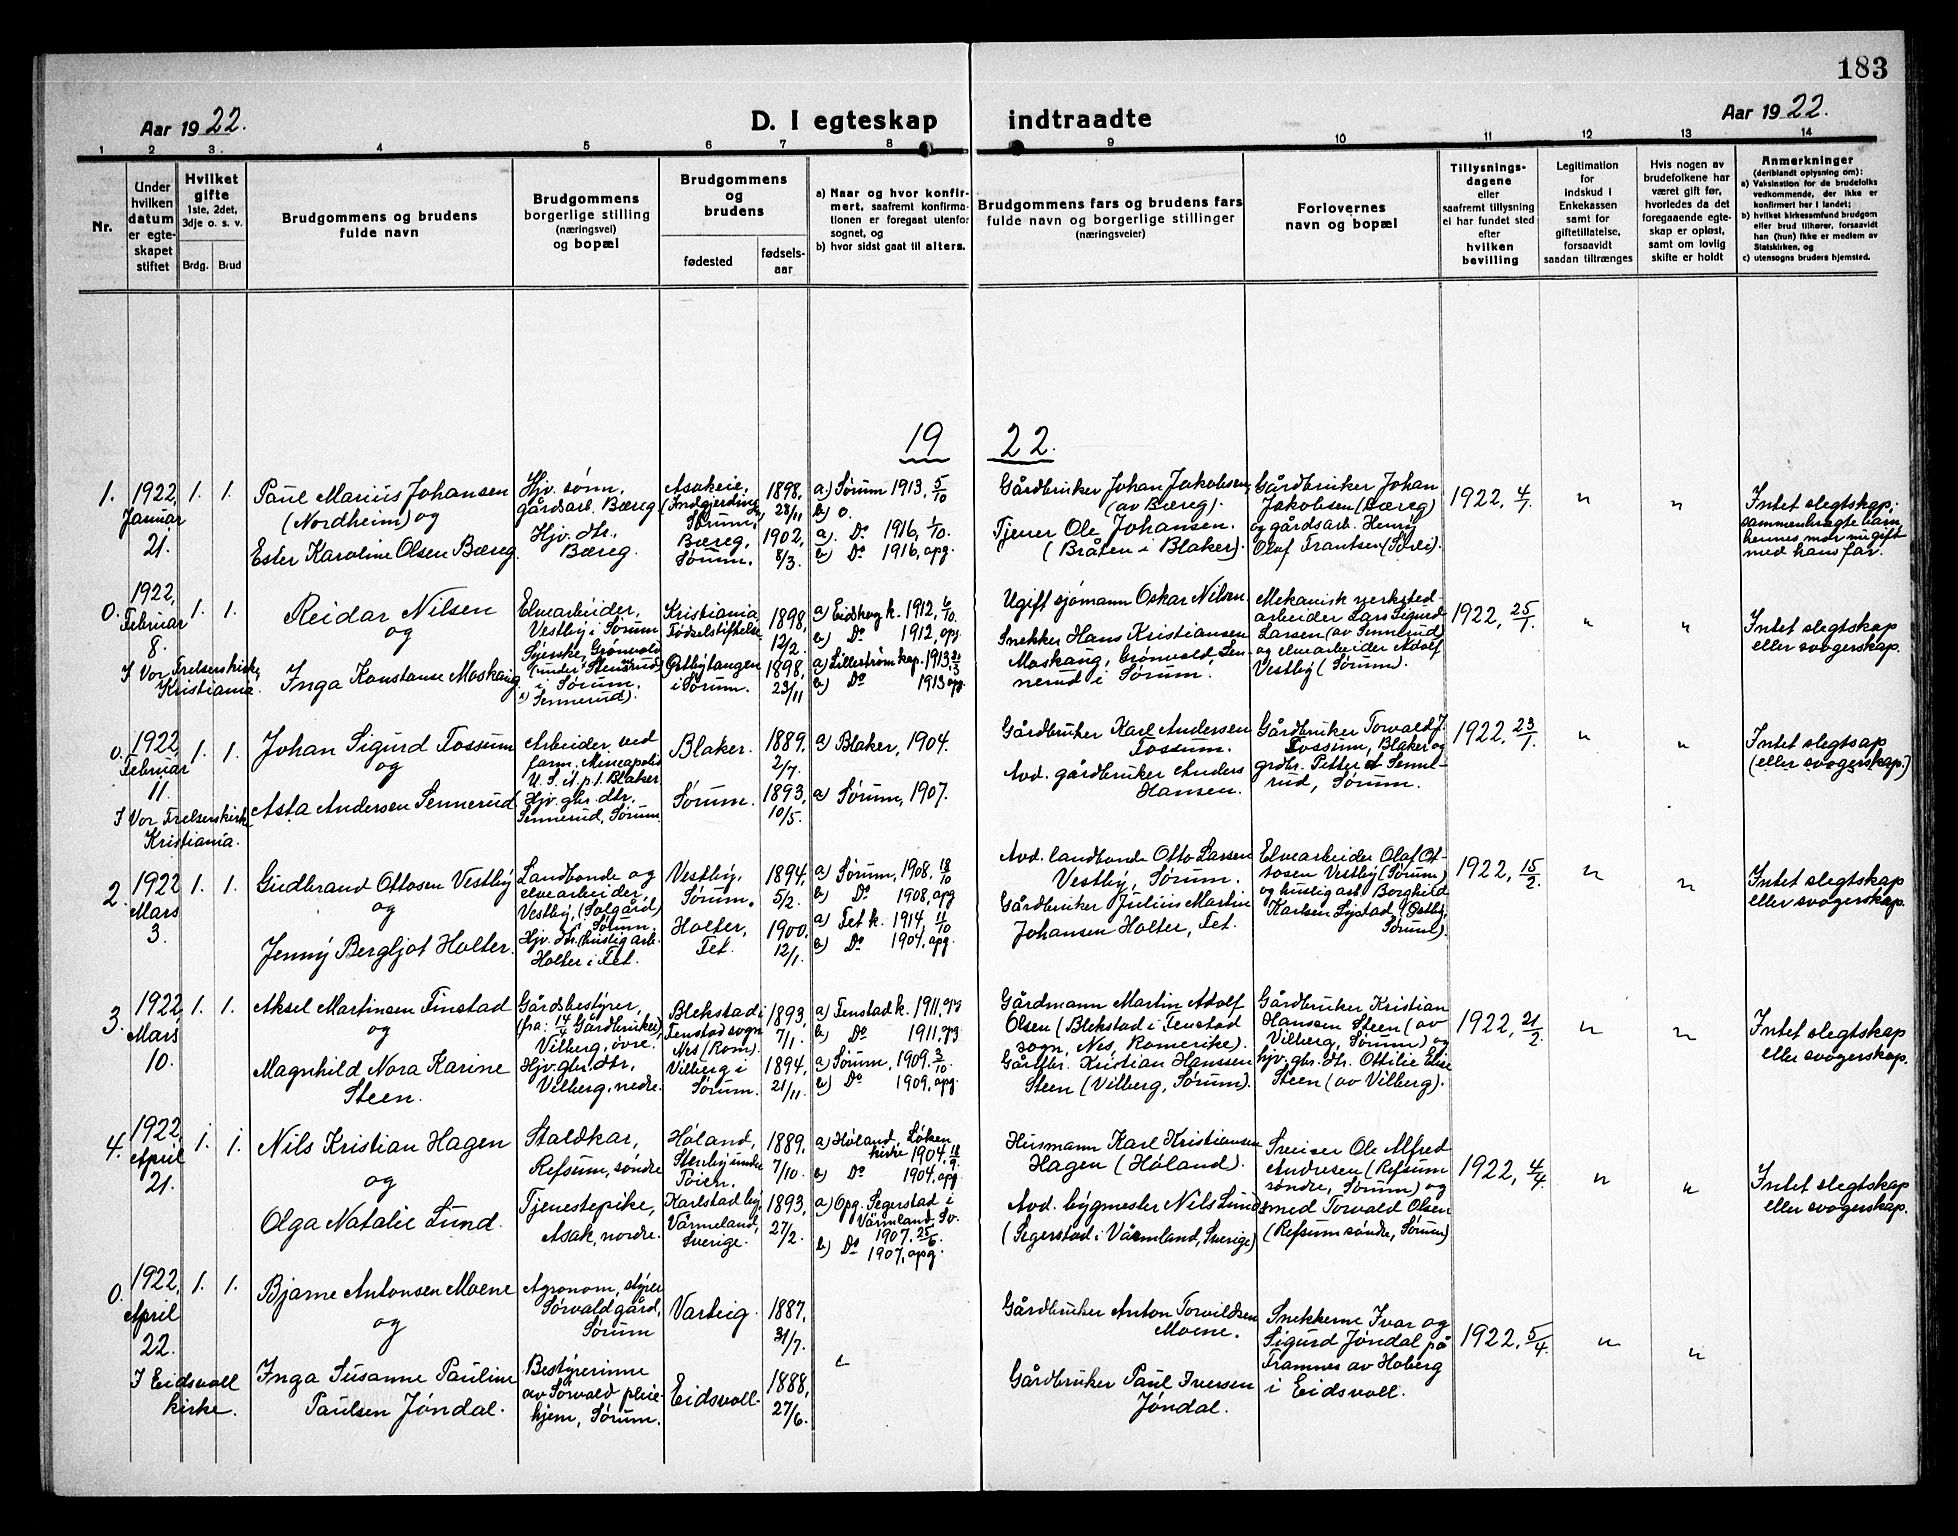 183
Aar 1922.
D. I egteskap indtraadte
Aar 1922.
1 2 3. 4 5 6 7 8 9 10 11 12 13 14
Nr.
Under
hvilken
datum
er egte-
skapet
stiftet
Hvilket
gifte
1ste, 2det,
3dje o. s. v.
Brdg. Brud
Brudgommens og brudens
fulde navn
Brudgommens
borgerlige stilling
(næringsvei)
og bopæl
Brudgommens
og
brudens
fødested
fødsels-
aar
a) Naar og hvor konfir-
mert, saafremt konfirma-
tionen er foregaat utenfor
sognet, og
b) hvor sidst gaat til alters.
Brudgommens fars og brudens fars
fulde navn og borgerlige stillinger
(næringsveier)
Forlovernes
navn og bopæl
Tillysnings-
dagene
eller
saafremt tillysning
ei har fundet sted
efter
hvilken
bevilling
Legitimation
for
indskud i
Enkekassen
samt for
giftetillatelse,
forsaavidt
saadan tiltrænges
Hvis nogen av
brudefolkene har
været gift før,
hvorledes da det
foregaaende egte-
skap er opløst,
samt om lovlig
skifte er holdt
Anmerkninger
(deriblandt oplysning om):
a) Vaksination for de brudefolks
vedkommende, der ikke er
konfirmert her i landet;
b) hvilket kirkesamfund brudgom
eller brud tilhører, forsaavidt
han (hun) ikke er medlem av
Statskirken, og
c) utensogns bruders hjemsted.
19 22.
1.
1922,
Januar
21.
1. 1.
Paul Marius Johansen
(Nordheim) og
Ester Karoline Olsen Bæreg.
Hjv. sønn,
gårdsarb. Bæreg
Hjv. dtr.
Bæreg.
Asakeie,
Sørum.
Bæreg,
Sørum.
1898,
28/11
1902,
8/3.
a) Sørum 1913, 5/10
b) o.
a. Do 1916, 1/10.
b) Do 1916, opg.
Gårdbruker Johan Jakobsen,
(av Bæreg).
Tjener Ole Johansen.
(Bråten i Blaker).
Gårdbruker Johan
Jakobsen (Bæreg)
og gårdsarb. Henry
Olaf Frantsen (Sørli).
1922, 4/1.
"
"
Intet slegtskap;
sammenbragte barn,
hennes mor nu gift
med hans far.
0.
1922,
Februar
8.
I Vor Frelsers kirke,
Kristiania.
1. 1.
Reidar Nilsen
og
Inga Konstanse Moskaug
Elvearbeider,
Vestby i Sørum
Syerske, Grønvold
(under Stensrud)
i Sørum.
Sennerud).
Kristiania
Fødselstiftelse
Østbytangen
i Sørum.
1898,
12/2
1898,
23/11
a) Eidsberg k. 1912, 6/10.
b) Do 1912, opg.
a) Lillestrøm kap. 1913, 21/3
b) Do 1913 opg.
Ugift sjømann Oskar Nilsen
Snekker Hans Kristiansen
Moskaug, Grønvold, Sen-
nerud i Sørum.
Mekanisk verksted-
arbeider Lars Sigurd
Larsen (av Sennerud)
og elvearbeider Adolf
Vestby (Sørum).
1922, 25/1.
"
"
Intet slegtskap
eller svogerskap.
0.
1922
Februar
11.
I Vor Frelsers kirke
Kristiania.
1. 1.
Johan Sigurd Fossum
og
Asta Andersen Sennerud
Arbeider ved
farm. Mineapolis
U. S. A. p. t. Blaker
Hjv. gbr. dtr.
Sennerud, Sørum.
Blaker.
Sørum.
1889.
2/7.
1893,
10/5.
a) Blaker, 1904.
a) Sørum, 1907.
Gårdbruker Karl Andersen
Fossum.
Avd. gårdbruker Anders
Hansen.
Gårdbruker Torvald J.
Fossum, Blaker og
grdbr. Petter A Senne-
rud, Sørum.
1922, 23/1.
"
"
Intet slegtsap
(eller svogerskap.)
2.
1922
Mars
3.
1. 1.
Gudbrand Ottosen Vestby
og
Jenny Bergljot Holter.
Landbonde og
elvearbeider,
Vestby, (Solgård)
Sørum.
Hjv. dtr. (huslig arb.
Holter i Fet.
Vestby,
Sørum.
Holter,
Fet.
1894,
5/2.
1900.
12/1.
a) Sørum, 1908, 18/10
b) Do 1908, opg
a) Fet k. 1914, 11/10
b) Do 1904, opg.
Avd. landbonde Otto Larsen
Vestby, Sørum.
Gårdbruker Julius Martin
Johansen Holter, Fet.
Elvearbeider Olaf Ot-
tosen Vestby (Sørum)
og huslig arb. Borghild
Karlsen Lystad, (Østby,
Sørum).
1922, 15/2.
"
"
Intet slegtskap
eller svogerskap.
3.
1922
Mars
10.
1. 1.
Aksel Martinsen Finstad
og
Magnhild Nora Karine
Steen.
Gårdsbestyrer,
(fra: 14/4 Gårdbruker)
Vilberg, øvre.
Hjv. gbr. dtr,
Vilberg, nedre.
Blekstad i
Fenstad sogn
Nes (Rom).
Vilberg i
Sørum.
1893,
7/1.
1894,
21/11
a) Fenstad k. 1911, opg
b) Do 1911, opg
a) Sørum, 1909. 3/10.
b) Do 1909, opg.
Gårdmann Martin Adolf
Olsen (Blekstad i Fenstad
sogn, Nes, Romerike).
Gårdbr. Kristian Hanssen
Steen (Vilberg, Sørum).
Gårdbruker Kristian
Hanssen Steen (av
Vilberg, Sørum) og
hjv. gbr. dtr. Ottilie Elise
Steen (av Vilberg).
1922, 21/2.
"
"
Intet slegtskap
eller svogerskap.
4.
1922
April
21.
1. 1.
Nils Kristian Hagen
og
Olga Natalie Lund.
Staldkar,
Refsum, søndre
Tjenestepike,
Asak, nordre.
Høland,
Stenby under
Toien.
Karlstad by,
Värmeland,
Sverige.
1889.
7/10.
1893,
27/2.
a) Høland, Løken
kirke 1904, 18/9.
b) Do 1904, opg.
a) Opg. Segerstad i
Värmland, Sv.
1907. 25/6.
b) Do
1907, opg.
Husmann Karl Kristiansen
Hagen (Høland).
Avd. bygmester Nils Lund
(Segerstad i Värmland, Sverige)
Sveiser Ole Alfred
Andresen (Refsum
søndre, Sørum) og
smed Torvald Olsen
(Refsum søndre, Sørum)
1922, 4/4.
"
"
Intet slegtskap
eller svogerskap.
0.
1922,
April
22.
I Eidsvoll
kirke.
1. 1.
Bjarne Antonsen Moene
og
Inga Susanne Pauline
Paulsen Jøndal.
Agronom, styrer
Sørvald gård,
Sørum
Bestyrerinne
av Sørvald pleie-
hjem, Sørum.
Varteig.
Eidsvoll.
1887.
31/7.
1888,
27/6.
Gårdbruker Anton Torvildsen
Moene.
Gårdbruker Paul Iversen
Jøndal.
Snekkerne Ivar og
Sigurd Jøndal på
Framnes av Hoberg
i Eidsvoll.
1922, 5/4.
"
"